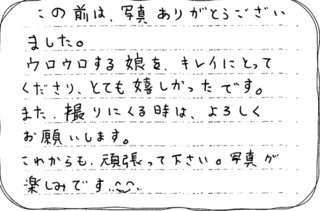 この前は、写真ありがとうござい
ました。
ウロウロする娘を、キレイにとって
くださり、とても嬉しかったです。
また、撮りにくる時は、よろしく
お願いします。
これからも、頑張って下さい。写真が
楽しみです